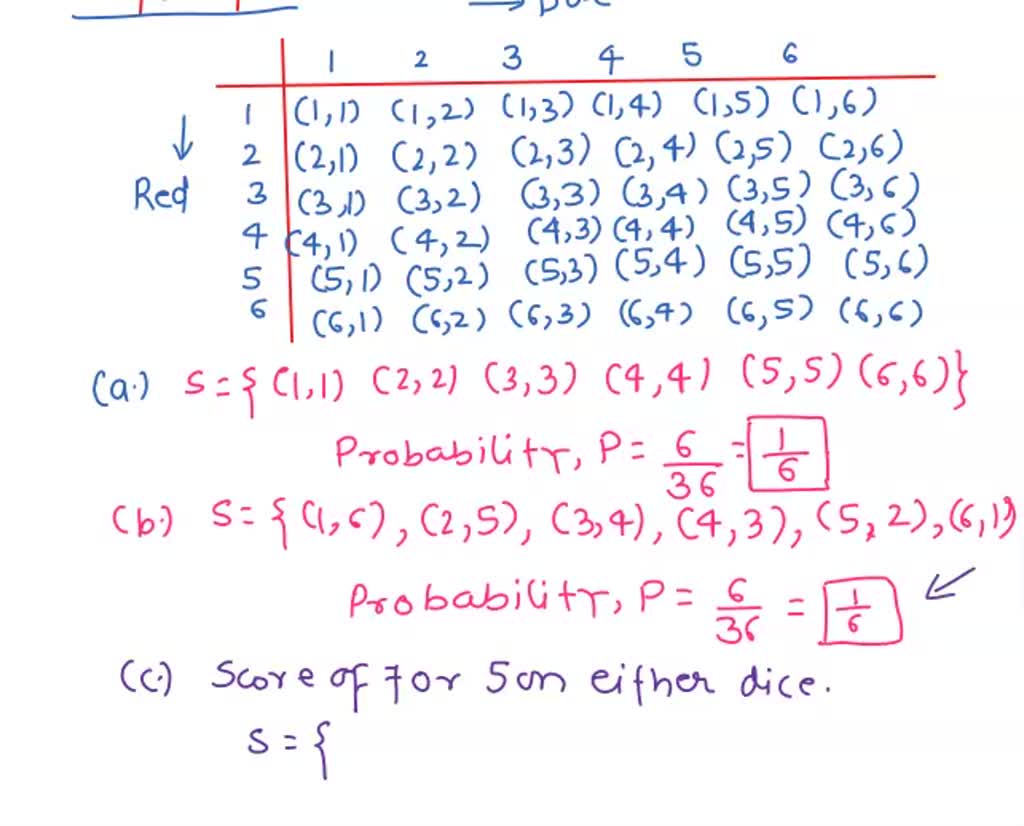 1 2 3 4 5 6
1 (1,1) (1,2) (1,3) (1,4) (1,5) (1,6)
2 (2,1) (2,2) (2,3) (2,4) (2,5) (2,6)
Red 3 (3,1) (3,2) (3,3) (3,4) (3,5) (3,6)
4 (4,1) (4,2) (4,3) (4,4) (4,5) (4,6)
5 (5,1) (5,2) (5,3) (5,4) (5,5) (5,6)
6 (6,1) (6,2) (6,3) (6,4) (6,5) (6,6)
(a.) S={ (1,1) (2,2) (3,3) (4,4) (5,5) (6,6)}
Probability, P= 6/36 = 1/6
(b.) S={ (1,6), (2,5), (3,4), (4,3), (5,2), (6,1)
Probability, P= 6/36 = 1/6
(c.) Score of 7 or 5 on either dice.
S={